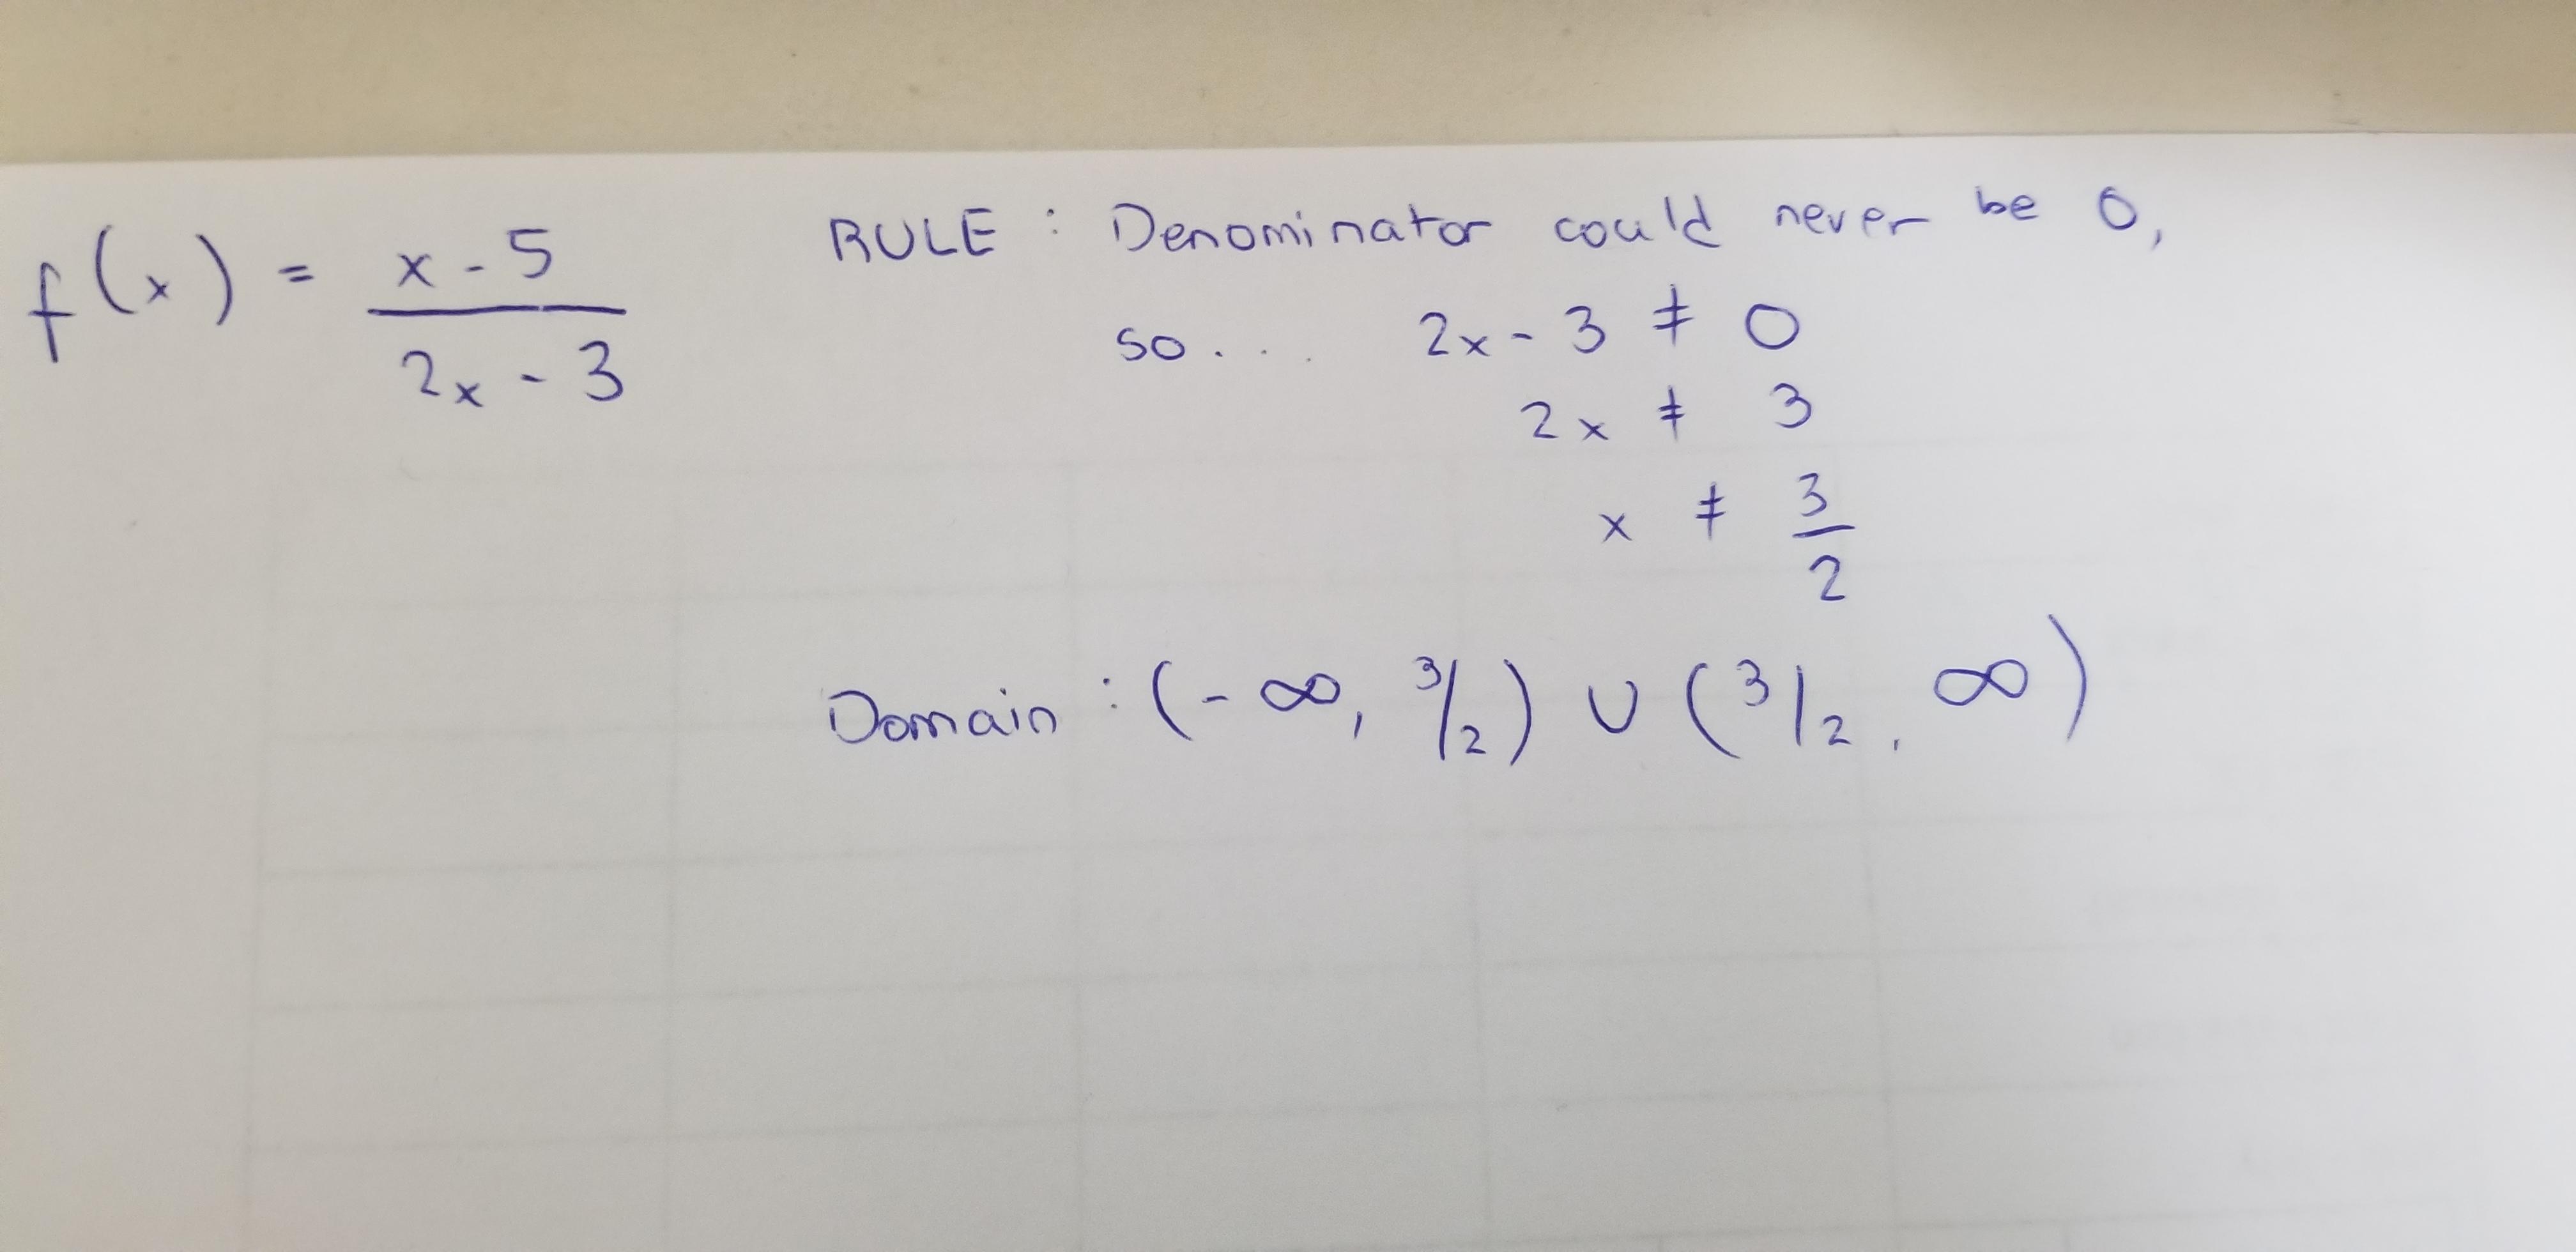 f(x) = x - 5 / 2x - 3
RULE : Denominator could never be 0,
so... 2x - 3 ≠ 0
2x ≠ 3
x ≠ 3/2
Domain : (-∞, 3/2) ∪ (3/2, ∞)